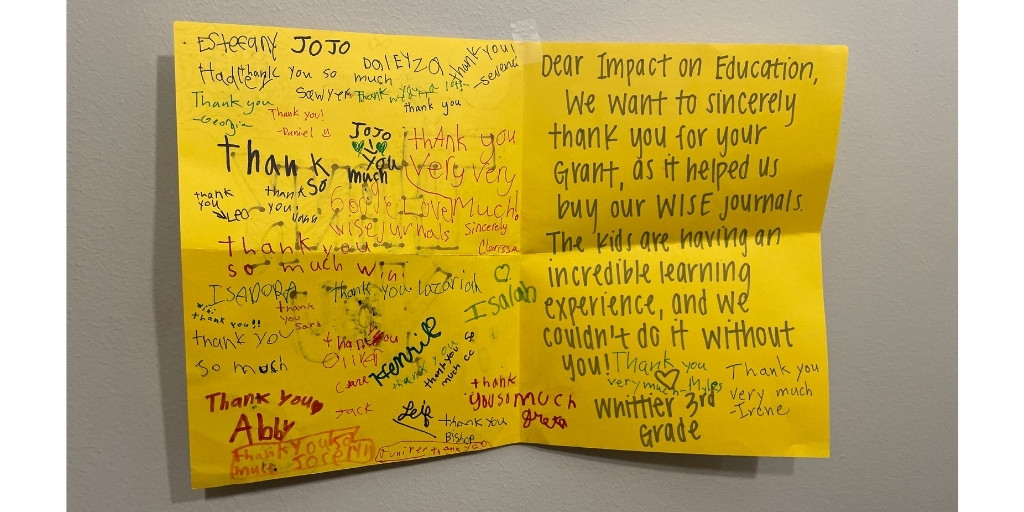 Esteefany JOJO
DalEyza
thank you!
-serenei
Hadley thank you so much
Sawyer thank
Thank you
-Georgia
thank you
Thank you!
-Daniel
JoJo
thank you
very very
much!
thank
you
so
much
thank
you
LEO
thank
you!
I Love
wise jurnals
Sincerely
Clarissa
thank you
so much Wini
ISADORA
thank you Lazariah
Isaiah
wini
thank you!!
thank
you
Sara
thank you
so much
thank you
Henrik
thank you
thank you
much
Thank you
Abby
Jack
Leif
thank you
Bishop
thank
you so much
greta
thank you so
much Jocelyn
Juniper thank you
Dear Impact on Education,
We want to sincerely
thank you for your
Grant, as it helped us
buy our WISE journals.
The kids are having an
incredible learning
experience, and we
couldn't do it without
you!
Thank you
very much -Myles
Thank you
very much
-Irene
Whittier 3rd
Grade